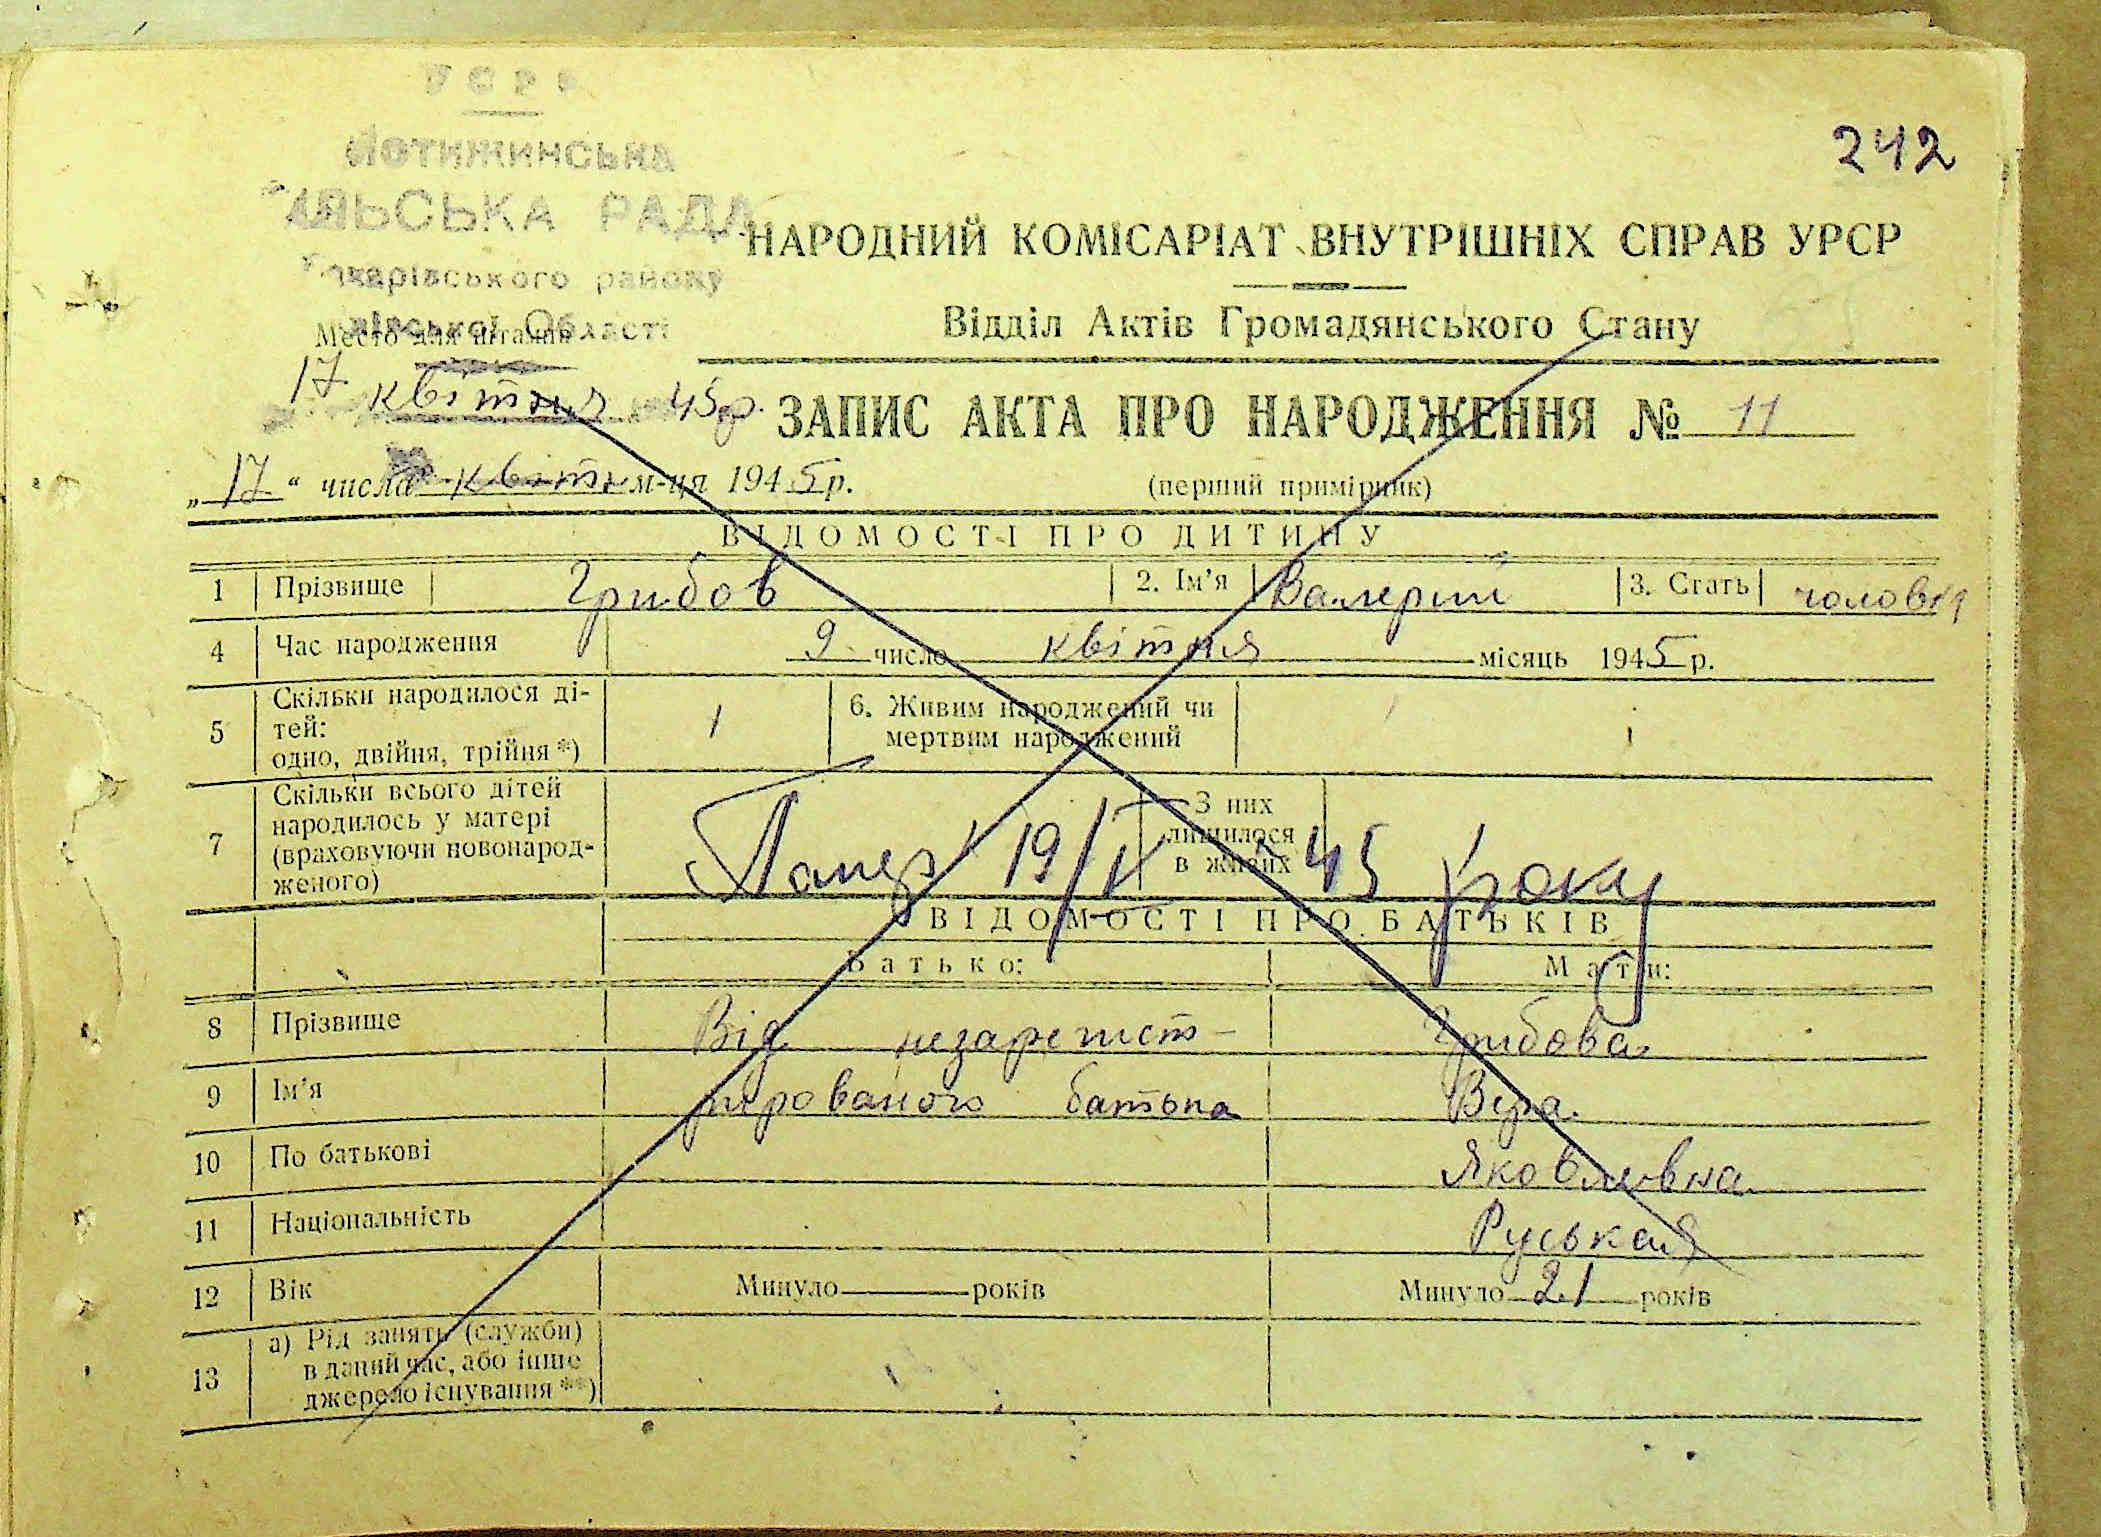 УСРР
242
Мотижинська
СІЛЬСЬКА РАДА
НАРОДНИЙ КОМІСАРІАТ ВНУТРІШНІХ СПРАВ УРСР
Макарівського району
Відділ Актів Громадянського Стану
Київської Області
Место для штампа
17 квітня 45 р. ЗАПИС АКТА ПРО НАРОДЖЕННЯ № 11
„17“ числа квітн м-ця 1945 р. (перший примірник)
ВІДОМОСТІ ПРО ДИТИНУ
1 Прізвище Грибов 2. Ім'я Валерий 3. Стать чоловіч
4 Час народження 9 число квітня місяць 1945 р.
5 Скільки народилося ді-
тей:
одно, двійня, трійня *) 1 6. Живим народжений чи
мертвим народжений 1
7 Скільки всього дітей
народилось у матері
(враховуючи новонарод-
женого) З них
лишилося
в живих
Помер 19/IV 45 року
ВІДОМОСТІ ПРО БАТЬКІВ
Батько: Мати:
8 Прізвище Від незарегист- Грибова
9 Ім'я рірованого батька Вера
10 По батькові Яковлевна
11 Національність Руськая
12 Вік Минуло років Минуло 21 років
13 а) Рід занять (служби)
в даний час, або інше
джерело існування **)